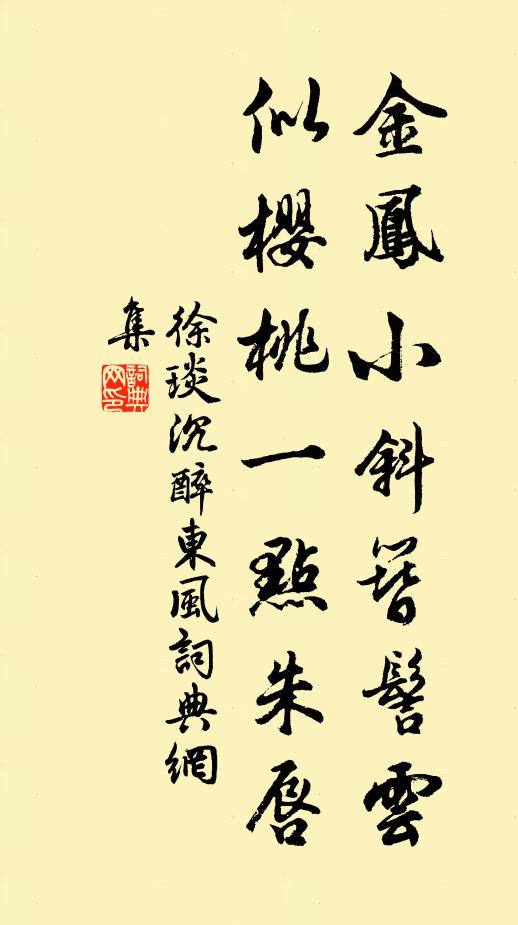 金鳳小斜簪髻雲
似櫻桃一點朱唇
徐琰沉醉東風詞典網
集
詞典
网印